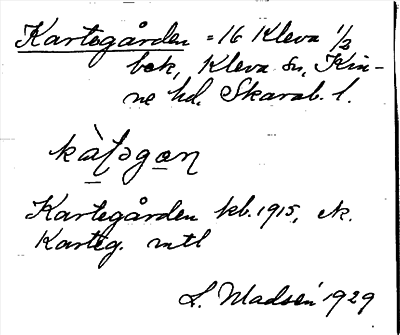 Kartegården = 16 Kleva 1/2
bek, Kleva sn, Kin-
ne hd. Skarab. l.
kàʃəgɷn
Kartegården kb. 1915, ek.
Karteg. mtl
L. Madsén 1929